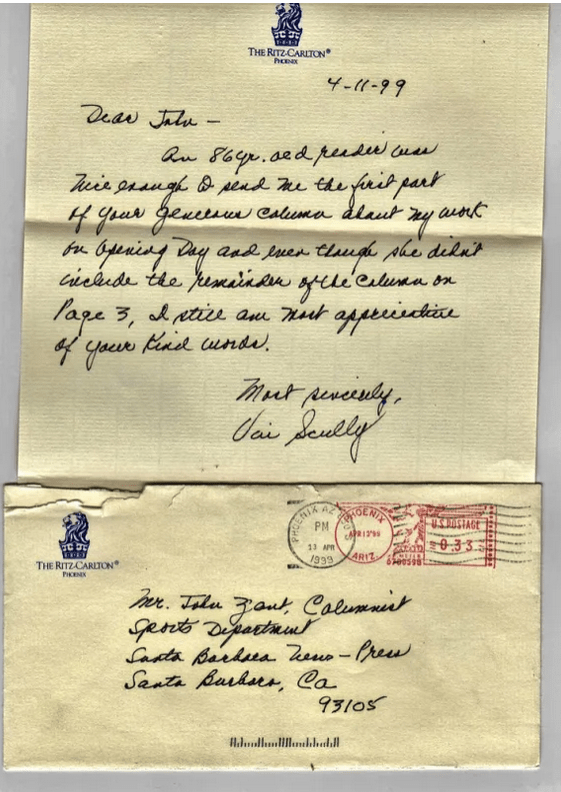 THE RITZ-CARLTON®
PHOENIX
4-11-99
Dear John —
An 86 yr. old reader was
nice enough to send me the first part
of your generous column about my work
on Opening Day and even though she didn't
include the remainder of the column on
Page 3, I still am most appreciative
of your kind words.
Most sincerely,
Vin Scully
THE RITZ-CARLTON®
PHOENIX
PHOENIX AZ
PM
13 APR
1999
PHOENIX
APR 13'99
ARIZ.
U.S. POSTAGE
0.33
Mr. John Zant, Columnist
Sports Department
Santa Barbara News-Press
Santa Barbara, Ca
93105